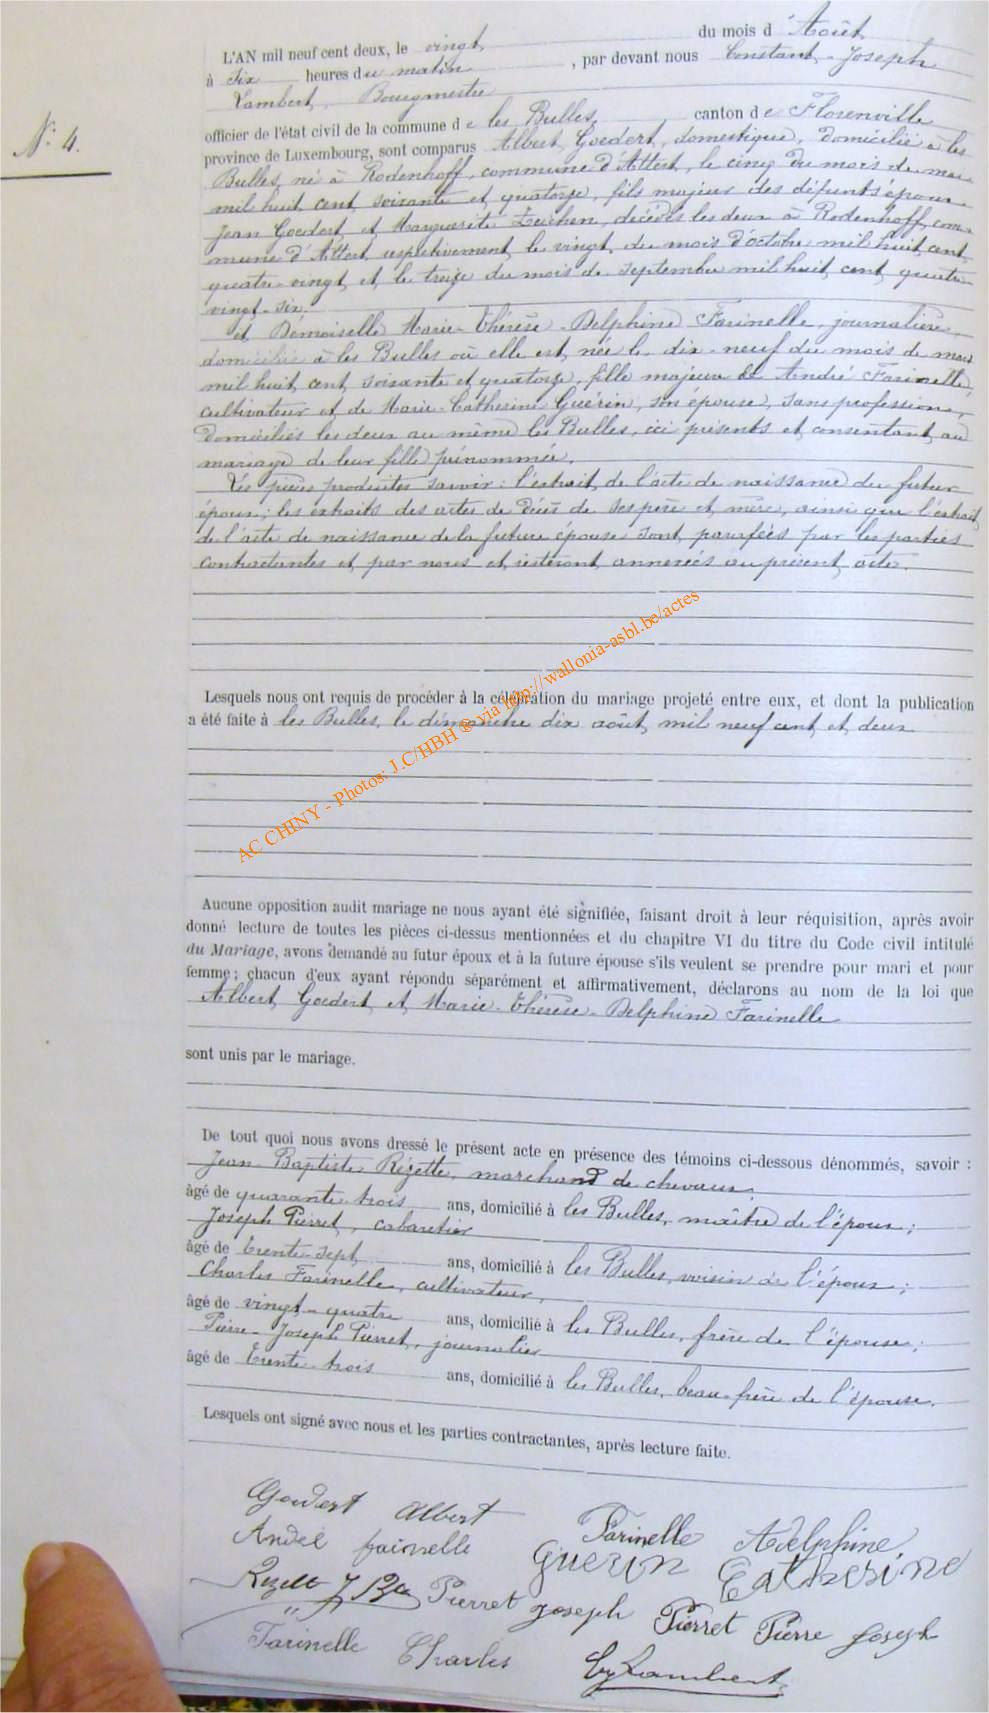 N° 4.
L'AN mil neuf cent deux, le vingt du mois d'Août
à six heures du matin, par devant nous Constant-Joseph
Lambert, Bourgmestre
officier de l'état civil de la commune de les Bulles, canton de Florenville
province de Luxembourg, sont comparus Albert Goedert, domestique, domicilié à les
Bulles, né à Rodenhoff, commune d'Attert, le cinq du mois de mai
mil huit cent soixante et quatorze, fils majeur des défunts époux
Jean Goedert et Marguerite Leuchen, décédés les deux à Rodenhoff, com-
mune d'Attert respectivement le vingt du mois d'octobre mil huit cent
quatre-vingt et le treize du mois de septembre mil huit cent quatre
vingt-six.
et Demoiselle Marie-Thérèse-Delphine Farinelle, journalière,
domiciliée à les Bulles où elle est née le dix-neuf du mois de mars
mil huit cent soixante et quatorze, fille majeure de André Farinelle,
cultivateur et de Marie-Catherine Guérin, son épouse, sans profession,
domiciliés les deux au même les Bulles, ici présents et consentant au
mariage de leur fille prénommée.
Les pièces produites savoir: l'extrait de l'acte de naissance du futur
époux; les extraits des actes de décès de ses père et mère, ainsi que l'extrait
de l'acte de naissance de la future épouse sont parafées par les parties
contractantes et par nous et resteront annexées au présent acte.
Lesquels nous ont requis de procéder à la célébration du mariage projeté entre eux, et dont la publication
a été faite à les Bulles, le dimanche dix août mil neuf cent et deux
AC CHINY - Photos: J.C/HBH ® via http://wallonia-asbl.be/actes
Aucune opposition audit mariage ne nous ayant été signifiée, faisant droit à leur réquisition, après avoir
donné lecture de toutes les pièces ci-dessus mentionnées et du chapitre VI du titre du Code civil intitulé
du Mariage, avons demandé au futur époux et à la future épouse s'ils veulent se prendre pour mari et pour
femme; chacun d'eux ayant répondu séparément et affirmativement, déclarons au nom de la loi que
Albert Goedert et Marie-Thérèse-Delphine Farinelle
sont unis par le mariage.
De tout quoi nous avons dressé le présent acte en présence des témoins ci-dessous dénommés, savoir :
Jean-Baptiste Rézette, marchand de chevaux,
âgé de quarante-trois ans, domicilié à les Bulles, maître de l'époux;
Joseph Pierret, cabaretier
âgé de trente-sept ans, domicilié à les Bulles, voisin de l'époux;
Charles Farinelle, cultivateur,
âgé de vingt-quatre ans, domicilié à les Bulles, frère de l'épouse;
Pierre-Joseph Pierret, journalier
âgé de trente-trois ans, domicilié à les Bulles, beau-frère de l'épouse.
Lesquels ont signé avec nous et les parties contractantes, après lecture faite.
Goedert Albert Farinelle Adelphine
André farinelle Guerin Catherine
Rezette J Bte Pierret joseph Pierret Pierre joseph
Farinelle Charles CJ Lambert